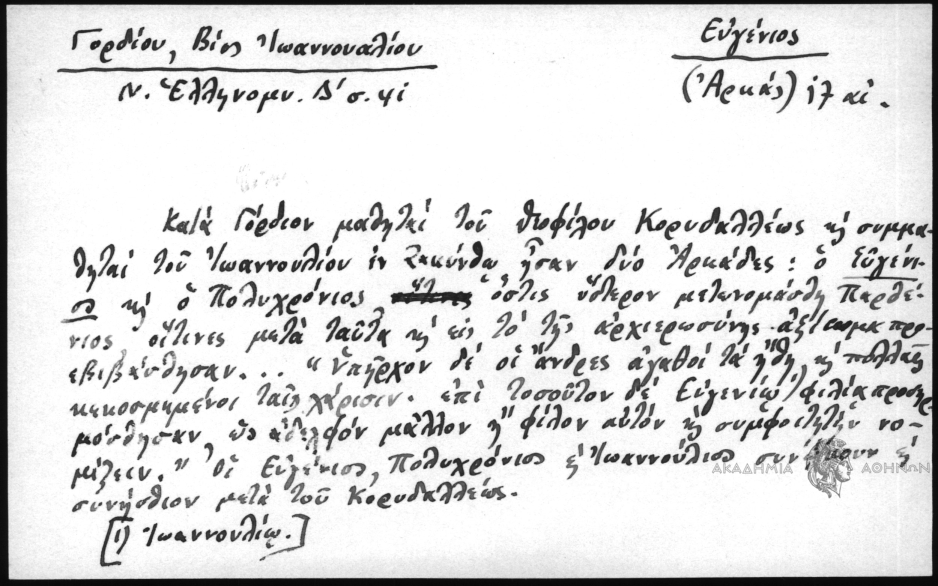 Γορδίου, Βίος Ἰωαννουλίου
Εὐγένιος
Ν. Ἑλληνομν. Δ' σ.
(Ἀρκάς) 17 αἰ.
Κατά Γόρδιον μαθηταί τοῦ Θεοφίλου Κορυδαλλέως κ̀ συμμα-
θηταί τοῦ Ἰωαννουλίου ἐν Ζακύνθῳ ἦσαν δύο Ἀρκάδες: ὁ Εὐγένι-
ος κ̀ ὁ Πολυχρόνιος ὅστις ὕστερον μετωνομάσθη Παρθέ-
νιος οἵτινες μετὰ ταῦτα κ̀ εἰς τὸ τῆς ἀρχιερωσύνης ἀξίωμα προ-
εβιβάσθησαν... "Ὑπῆρχον δέ οἱ ἄνδρες ἀγαθοί τά ἤθη κ̀ πολλαῖς
κεκοσμημένοι ταῖς χάρισιν. ἐπί τοσοῦτον δέ Εὐγενίῳ φιλία προσηρ-
μόσθησαν, ὡς ἀδελφόν μᾶλλον ἤ φίλον αὐτόν κ̀ συμφοιτητήν νο-
μίζειν." Οἱ Εὐγένιος, Πολυχρόνιος κ̀ Ἰωαννούλιος
συνήσθιον μετά τοῦ Κορυδαλλέως.
[1) Ἰωαννουλίῳ.]
ΑΚΑΔΗΜΙΑ ΑΘΗΝΩΝ